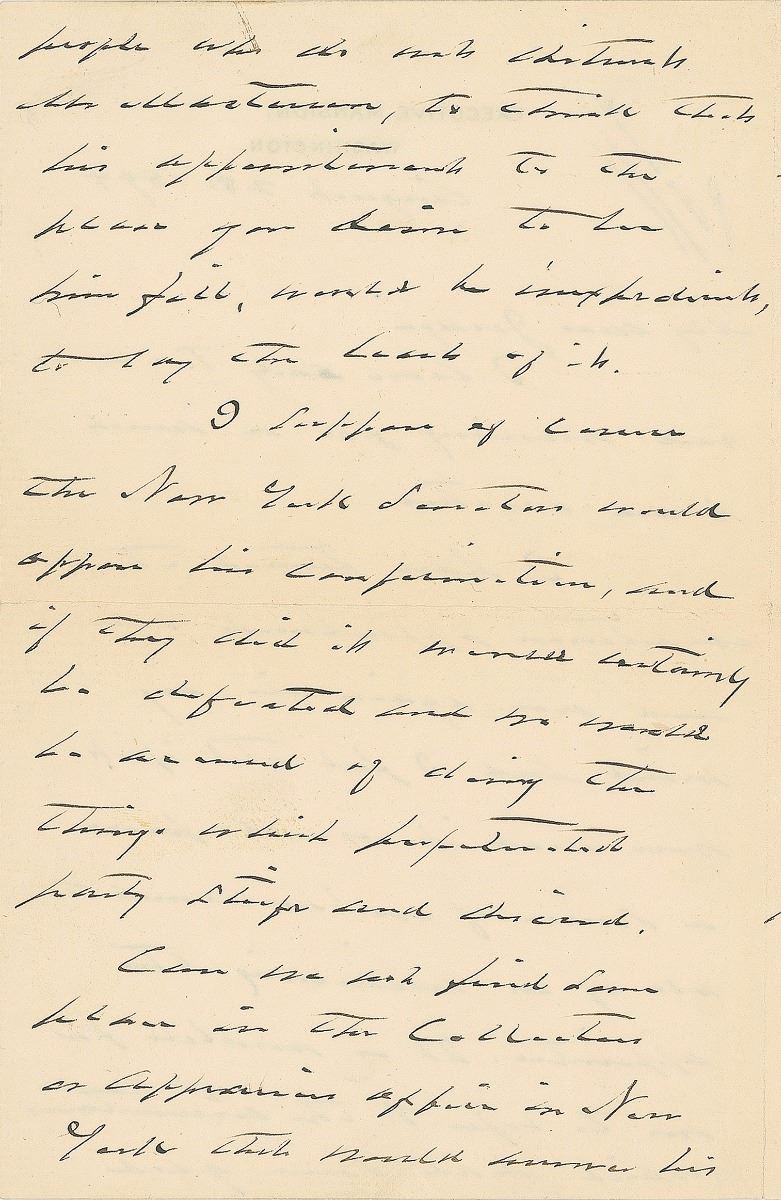 people who do not distrust
Mr Masterson, to think that
his appointment to the
place you desire to see
him fill, would be inexpedient,
to say the least of it.
I suppose of course
the New York Senators would
oppose his confirmation, and
if they did it would certainly
be defeated and we would
be accused of doing the
things which perpetuated
party strife and discord.
Can we not find some
place in the Collectors
or Appraisers office in New
York that would answer his